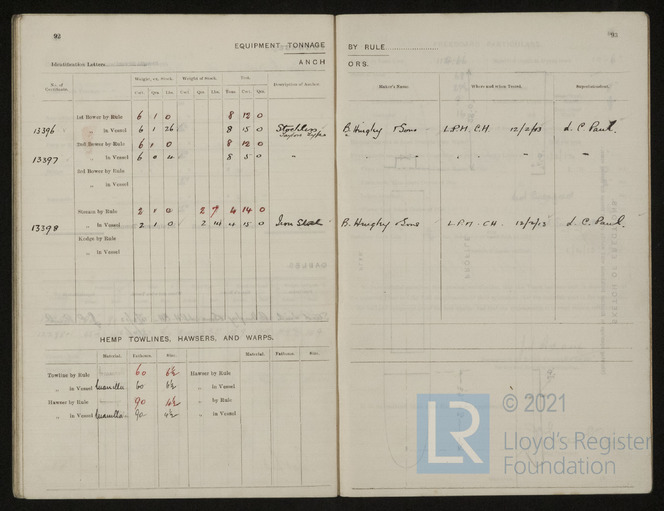 92
EQUIPMENT TONNAGE
Identification Letters
ANCH
No. of Certificate.
Weight, ex. Stock.
Weight of Stock.
Test.
Description of Anchor.
Cwt. Qrs. Lbs. Cwt. Qrs. Lbs. Tons. Cwt. Qrs.
1st Bower by Rule 6 1 0 8 12 0
13396 „ in Vessel 6 1 26 8 15 0 Stockless
2nd Bower by Rule 6 1 0 8 12 0
13397 „ in Vessel 6 0 4 8 5 0 „
3rd Bower by Rule
„ in Vessel
Stream by Rule 2 1 0 2 4 14 0
13398 „ in Vessel 2 1 0 2 4 15 0 Iron Stock
Kedge by Rule
„ in Vessel
HEMP TOWLINES, HAWSERS, AND WARPS.
Material. Fathoms. Size. Material. Fathoms. Size.
Towline by Rule 60 6½ Hawser by Rule
„ in Vessel Manilla 60 6½ „ in Vessel
Hawser by Rule 90 4½ „ by Rule
„ in Vessel Manilla 90 4½ „ in Vessel
93
BY RULE
ORS.
Maker's Name. Where and when Tested. Superintendent.
B. Hingley & Sons L.P.H. C.H. 12/2/03 L. C. Paul.
„ „ „ „ „
B. Hingley & Sons L.P.H. C.H. 12/2/03 L. C. Paul.
LR
© 2021
Lloyd's Register
Foundation